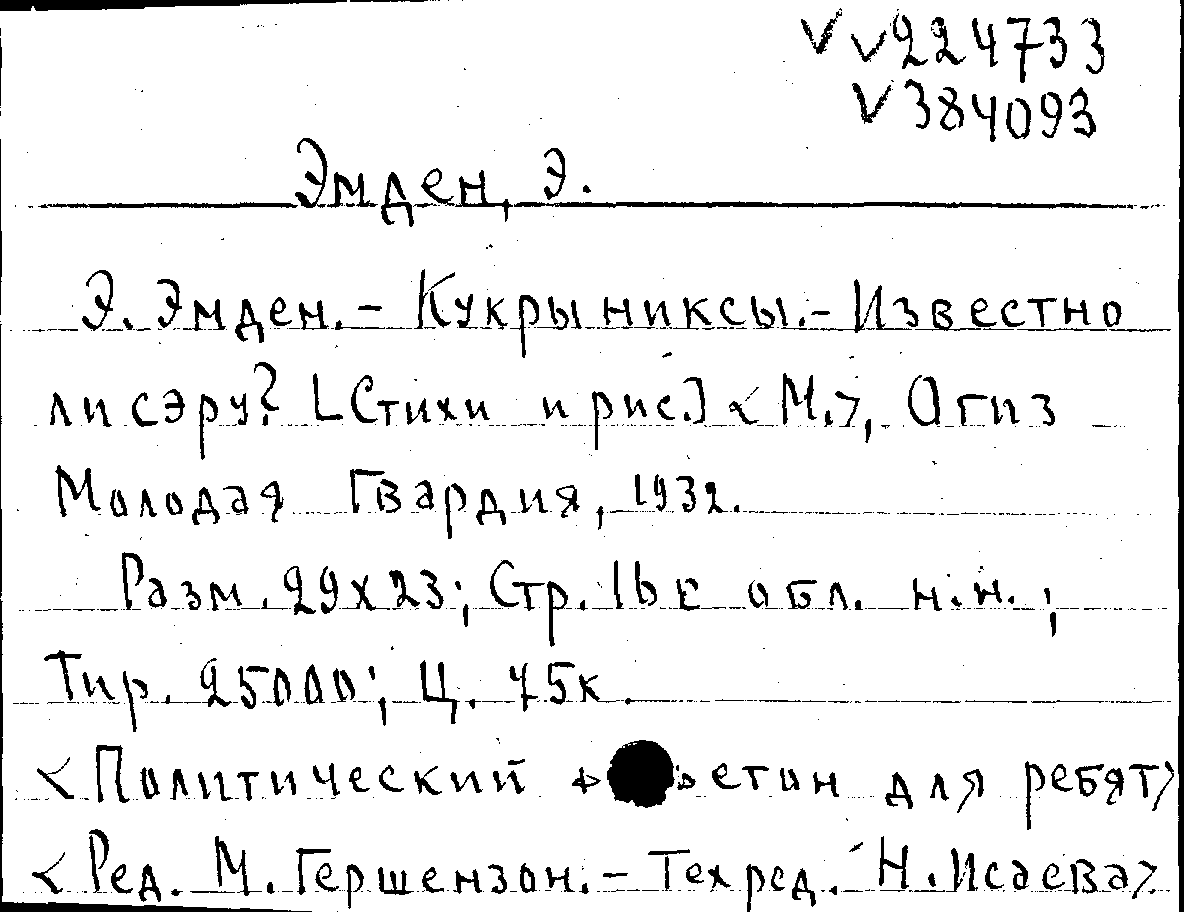 VV224733
V384093
Эмден, Э.
Э. Эмден. - Кукрыниксы. - Известно
ли сэру? [Стихи и рис.] <М.>, Огиз
Молодая Гвардия, 1932.
Разм. 29х23; Стр. 16 с обл. н.н.;
Тир. 25000; Ц. 75к.
<Политический для ребят>
<Ред. М. Гершензон. - Техред. Н. Исаева>.